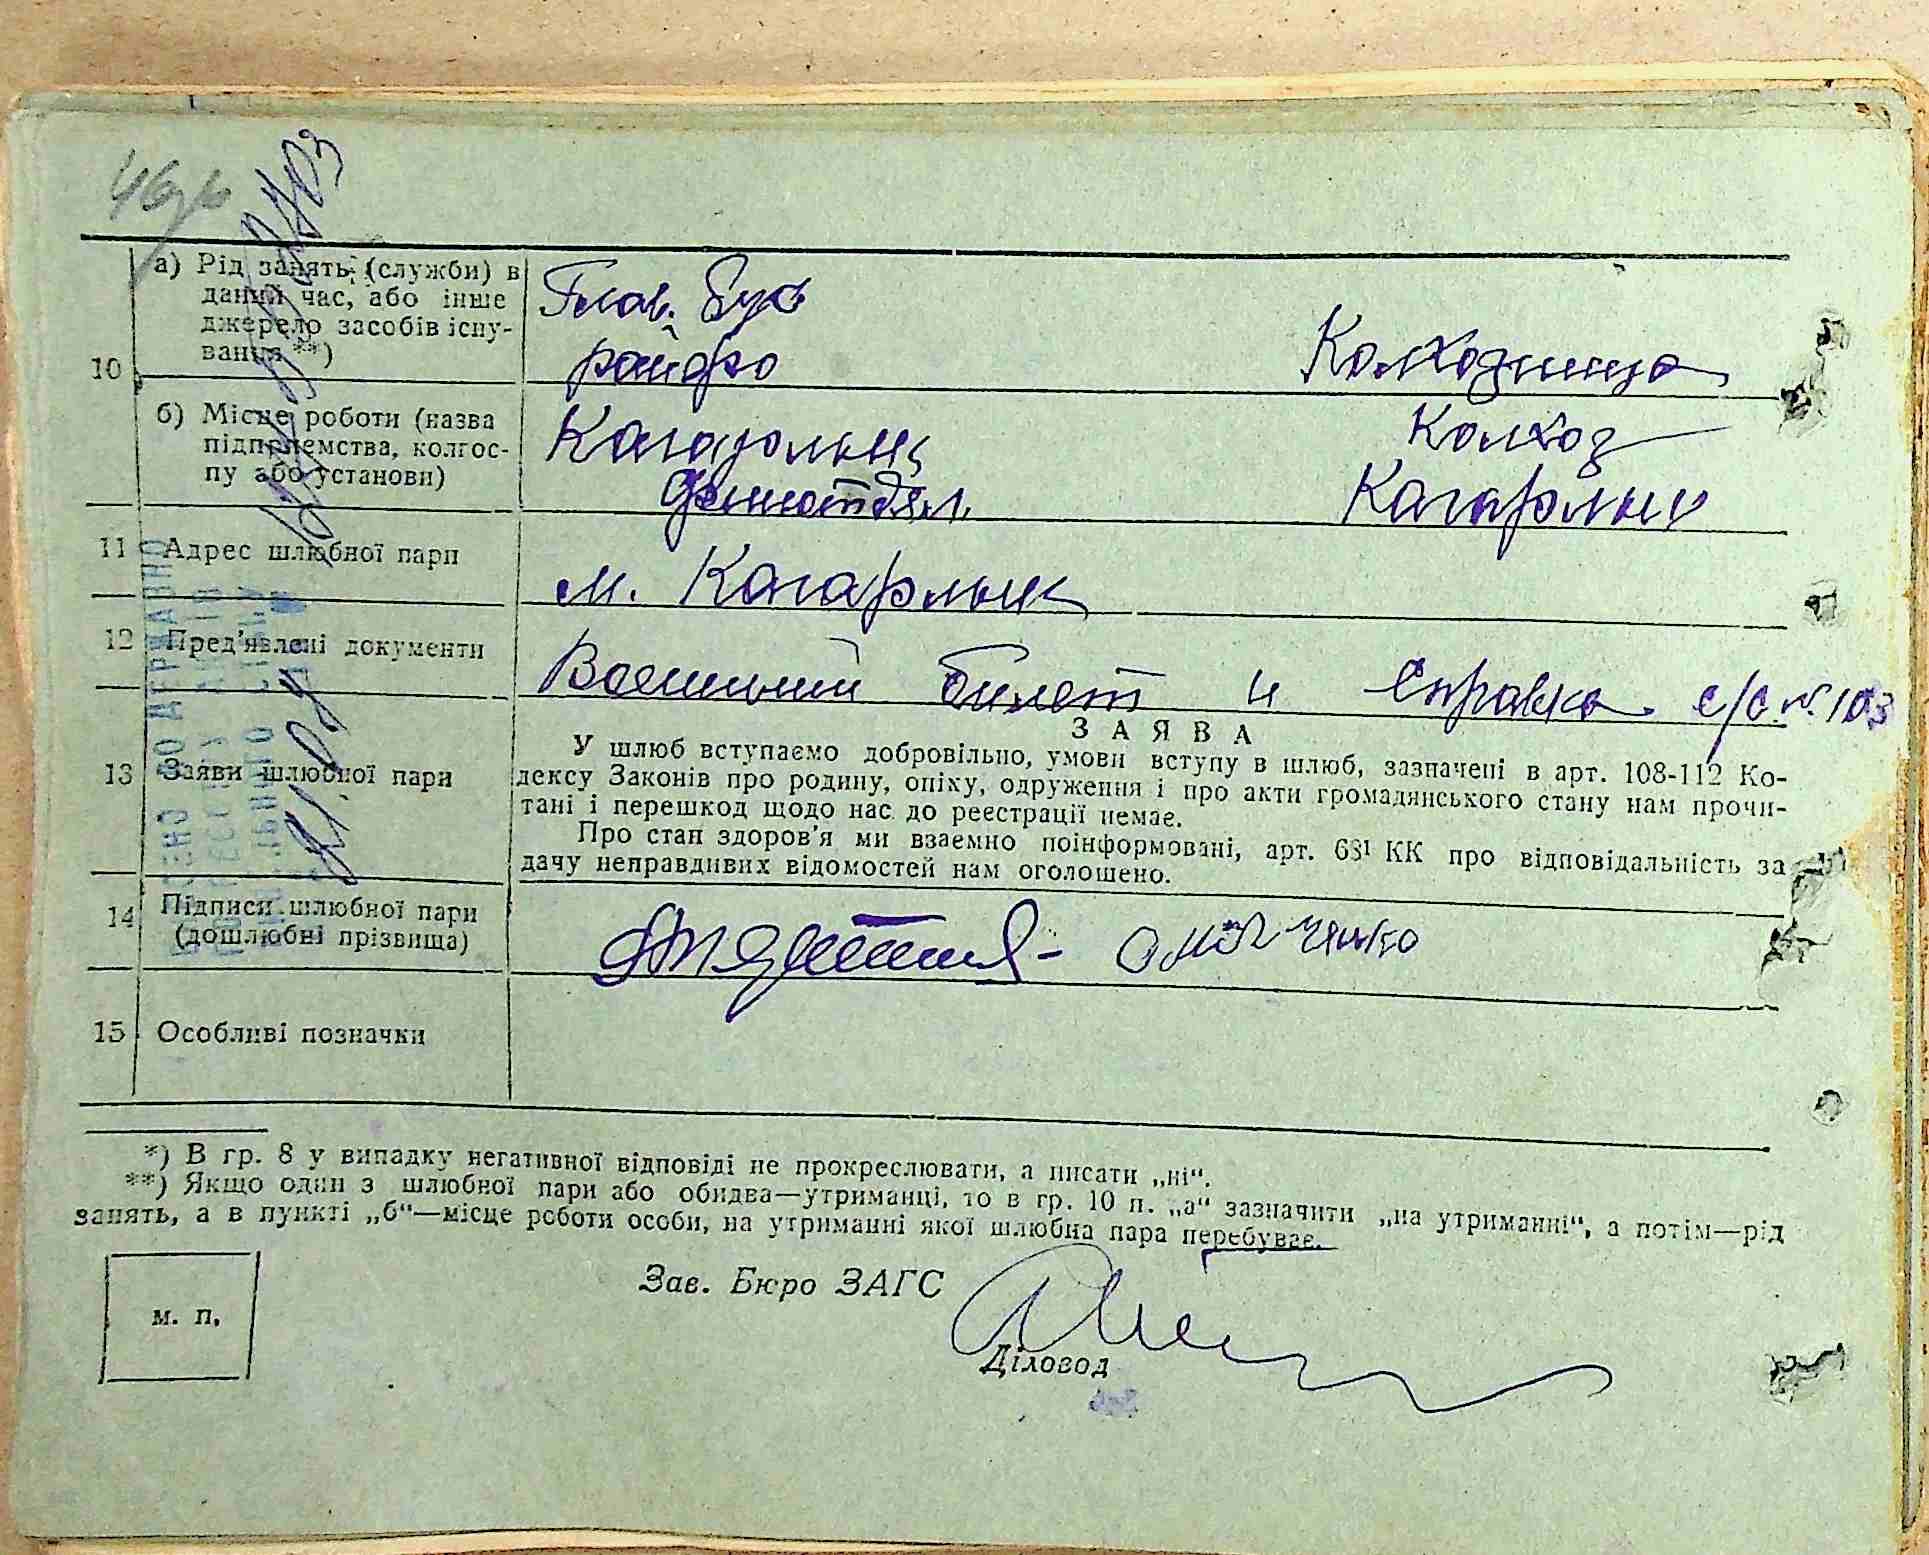 46
10
а) Рід занять (служби) в
даний час, або інше
джерело засобів існу-
вання **)
Глав. бух
райфо
Колхозница
б) Місце роботи (назва
підприємства, колгос-
пу або установи)
Кагарлык
финотдел
Колхоз
Кагарлык
11 Адрес шлюбної пари
м. Кагарлык
12 Пред'явлені документи
Военный билет и справка с/с №103
13 Заяви шлюбної пари
ЗАЯВА
У шлюб вступаємо добровільно, умови вступу в шлюб, зазначені в арт. 108-112 Ко-
дексу Законів про родину, опіку, одруження і про акти громадянського стану нам прочи-
тані і перешкод щодо нас до реєстрації немає.
Про стан здоров'я ми взаємно поінформовані, арт. 68¹ КК про відповідальність за
дачу неправдивих відомостей нам оголошено.
14 Підписи шлюбної пари
(дошлюбні прізвища)
15 Особливі позначки
*) В гр. 8 у випадку негативної відповіді не прокреслювати, а писати „ні“.
**) Якщо один з шлюбної пари або обидва—утриманці, то в гр. 10 п. „а“ зазначити „на утриманні“, а потім—рід
занять, а в пункті „б“—місце роботи особи, на утриманні якої шлюбна пара перебуває.
м. п.
Зав. Бюро ЗАГС
Діловод